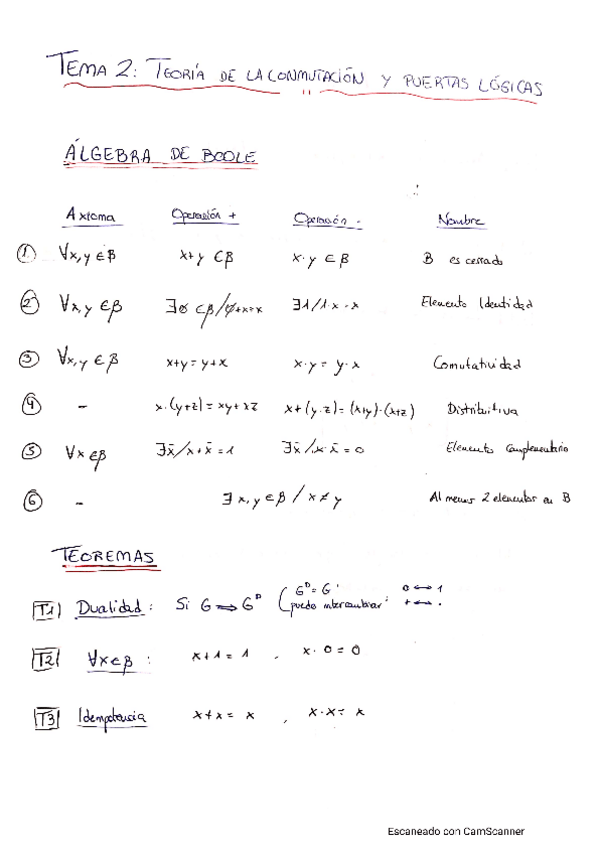 TEMA 2: TEORÍA DE LA CONMUTACIÓN Y PUERTAS LÓGICAS
ÁLGEBRA DE BOOLE
Axioma Operación + Operación · Nombre
① ∀x,y ∈ β x+y ∈ β x·y ∈ β B es cerrado
② ∀x,y ∈ β ∃∅ ∈ β/∅+x=x ∃1/1·x=x Elemento Identidad
③ ∀x,y ∈ β x+y = y+x x·y = y·x Comutatividad
④ - x·(y+z) = xy + xz x+(y·z) = (x+y)·(x+z) Distributiva
⑤ ∀x ∈ β ∃x̄/x+x̄=1 ∃x̄/x·x̄=0 Elemento Complementario
⑥ - ∃x,y ∈ β / x≠y Al menos 2 elementos en B
TEOREMAS
T1) Dualidad: Si G ⟹ Gᴰ (Gᴰ = G' 0 ↔ 1
puedo intercambiar: + ↔ ·
T2) ∀x ∈ β : x+1 = 1 , x·0 = 0
T3) Idempotencia x+x = x , x·x = x
Escaneado con CamScanner